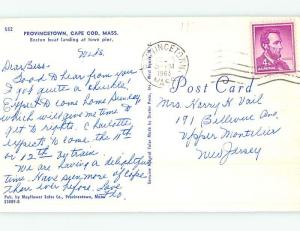 552
PROVINCETOWN, CAPE COD, MASS.
Boston boat landing at town pier.
Weds.
Dear Bess.
Good to hear from you.
I got quite a chuckle!
Expect to come home Sunday
which will give me time
to get to rights. Charlotte
expects to come the 11th
or 12th by train.
We are having a delightful
time. Have seen more of Cape
than ever before. Love
Pub. by Mayflower Sales Co., Provincetown, Mass.
PROVINCETOWN
1963
MASS.
4¢
Post Card
Mrs. Harry K Vail
191 Bellevue Ave
Upper Montclair
New Jersey